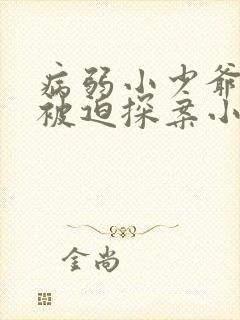 病弱小少爷
被迫探案小
金尚